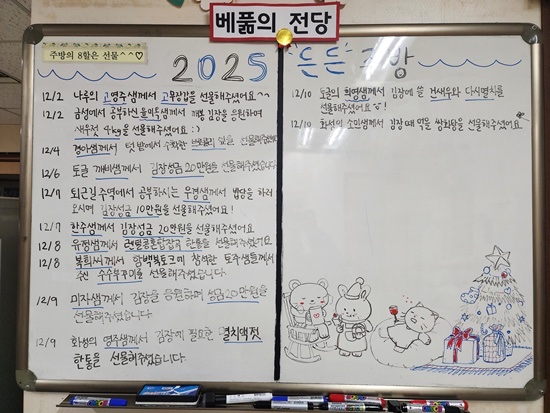 베풂의 전당
주방의 8할은 선물^^♡
2025 든든 주방
12/2 나루의 고영주샘께서 고무장갑을 선물해주셨어요^^
12/2 금성에서 공부하신 께서 김장을 응원하며
새우젓 4kg을 선물해주셨어요 :)
12/4 경아샘께서 텃밭에서 수확한 선물해주셨어요
12/6 토글 개비샘께서 김장성금 20만원을 선물해주셨습니다
12/7 퇴근길 주역에서 공부하시는 우경샘께서 밥당을 하러
오시며 김장성금 10만원을 선물해주셨어요!
12/7 한주샘께서 김장성금 20만원을 선물해주셨어요
12/8 유정샘께서 선물해주셨어요
12/8 복희씨께서 함백복토크에 참석한 토주샘들께서
주신 수수부꾸미를 선물해주셨습니다
12/9 미자샘께서 김장을 응원하며 성금20만원을
선물해주셨습니다
12/9 화성의 영주샘께서 김장에 필요한 멸치액젓
한통을 선물해주셨습니다
12/10 토글의 희영샘께서 김장에 쓸 건새우와 다시멸치를
선물해주셨어요!
12/10 화성의 소민샘께서 김장 때 먹을 쌍화탕을 선물해주셨어요